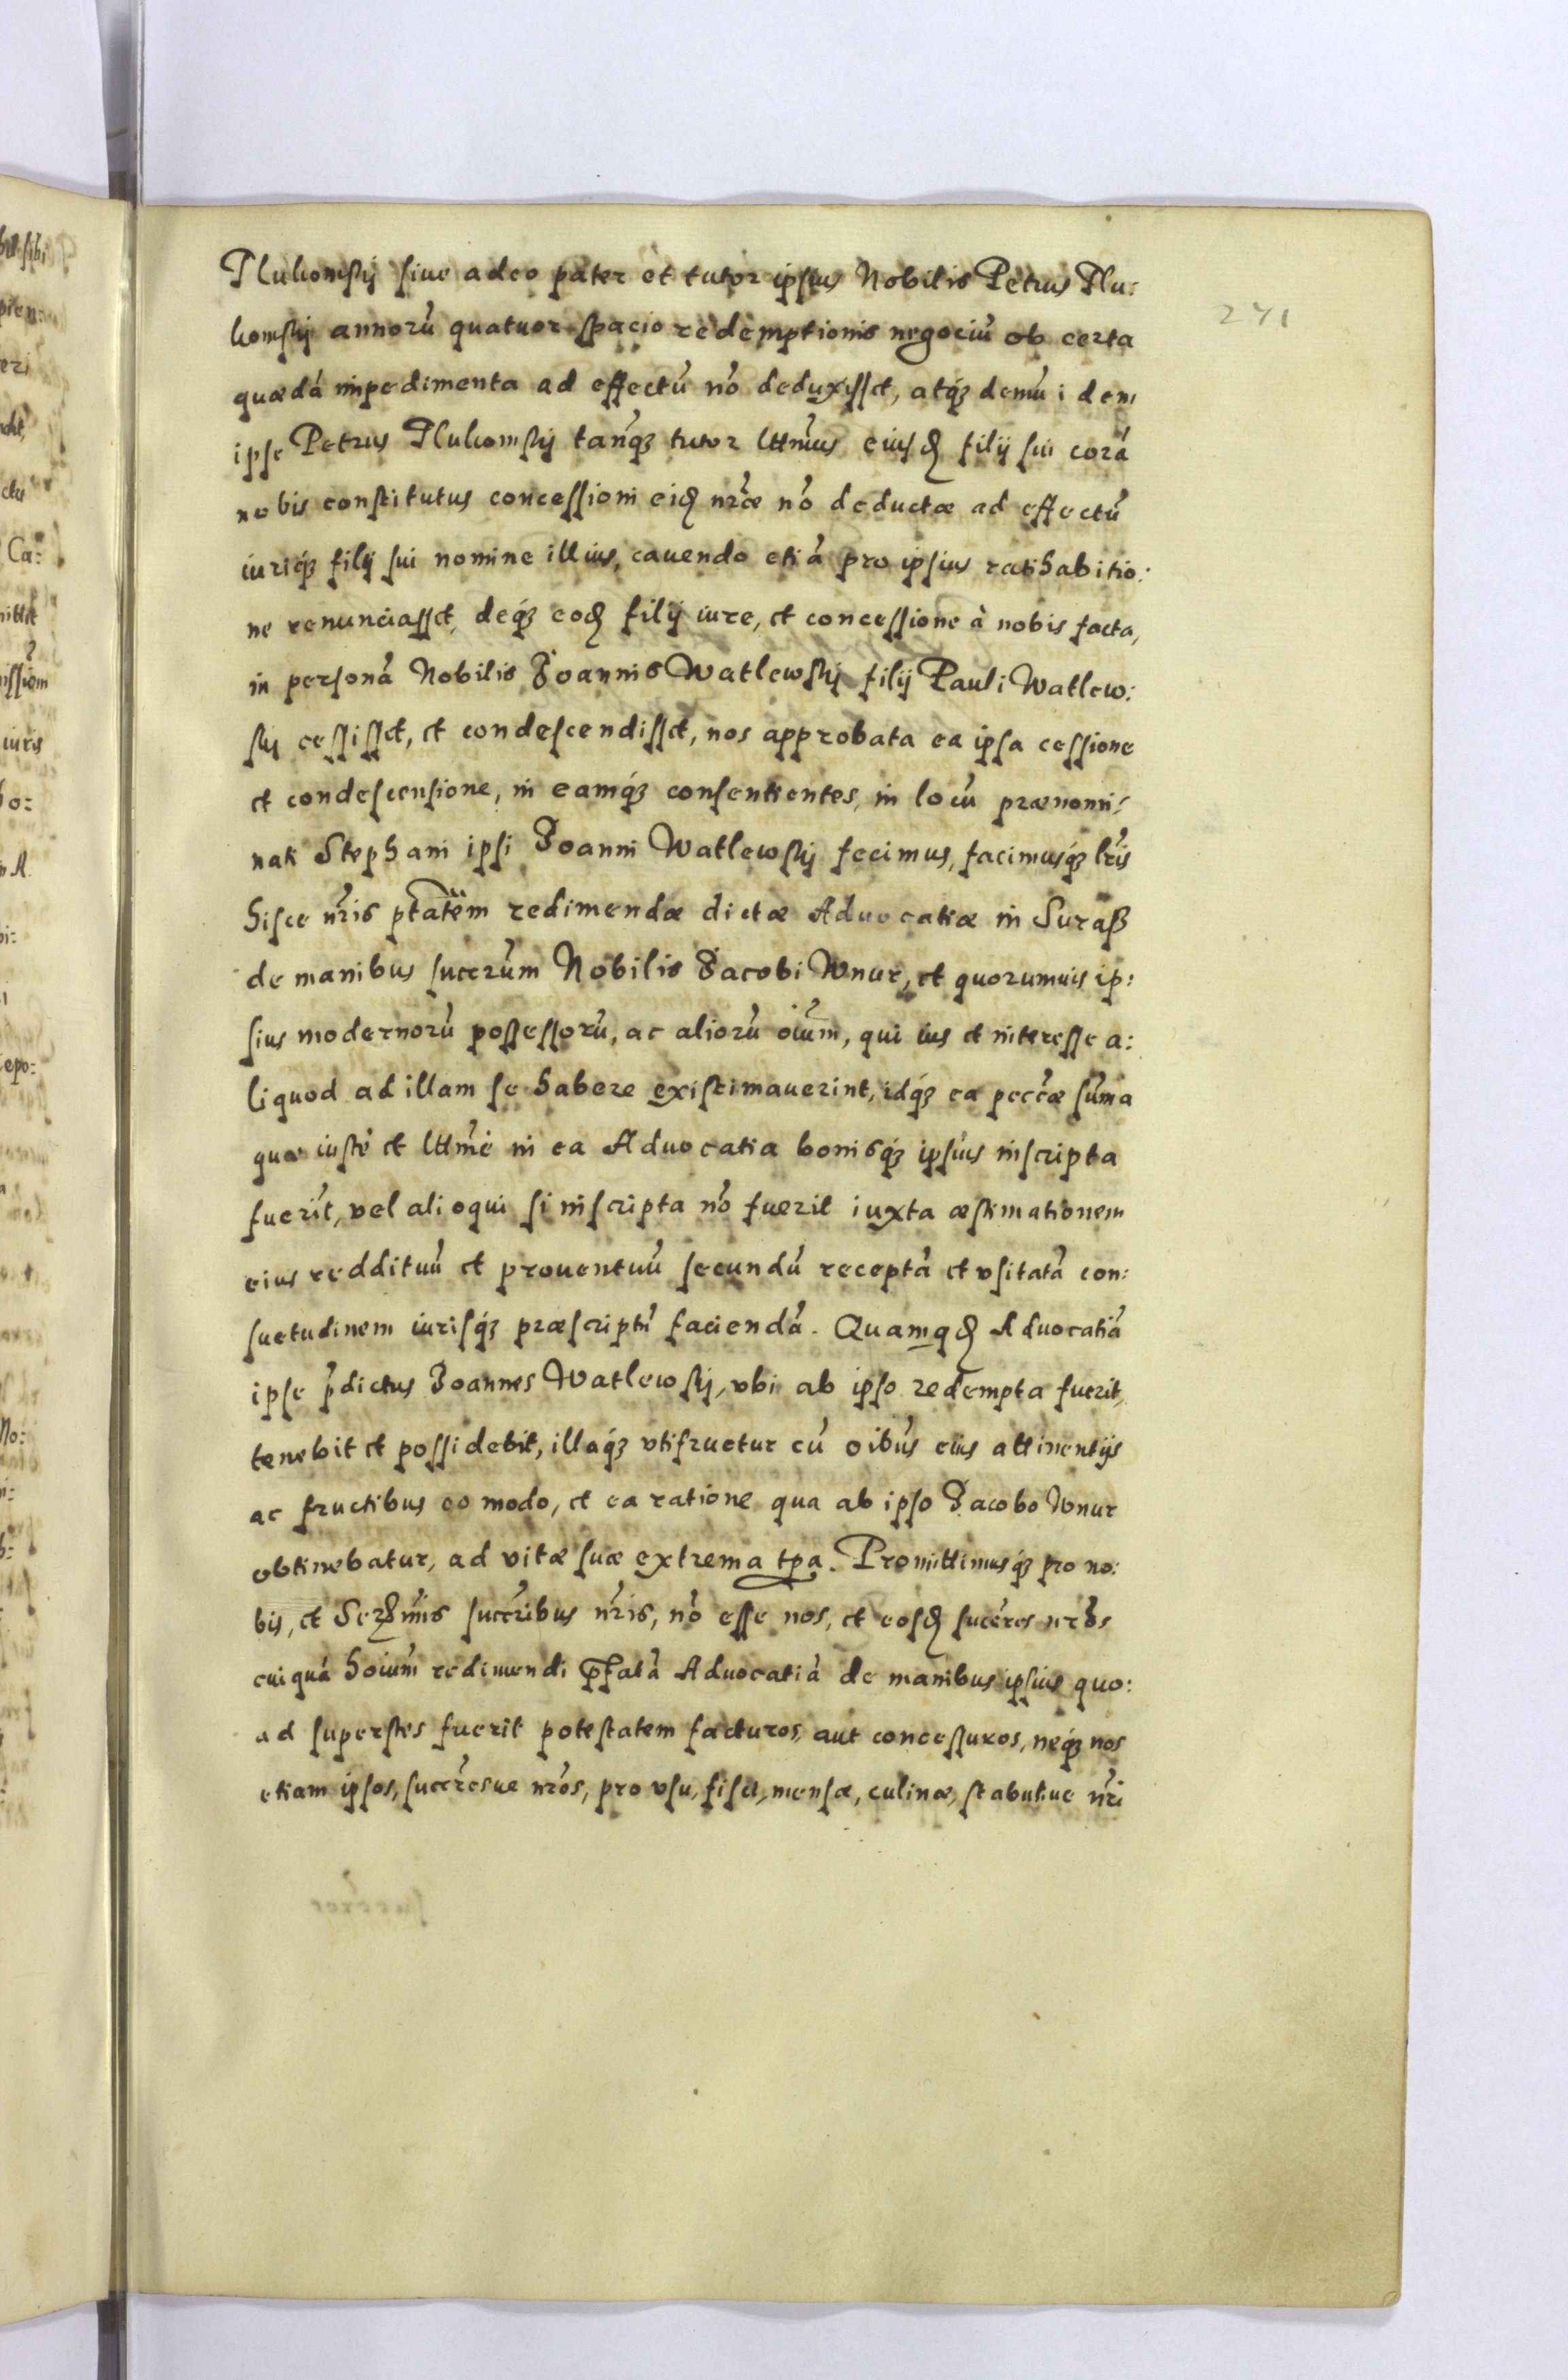 Plukomskij siue adeo pater et tutor ipsius Nobilis Petrus Plu:
komskij annorū quatuor spacio redemptionis negociū ob certa
quædā impedimenta ad effectū nō deduxisset, atq́ꝫ demū idem
ipse Petrus Plukomskij tanq́ꝫ tutor lttimus eiusdē filij sui corā
nobis constitutus concessioni eidē nræ nō deductæ ad effectū
iuriq́ꝫ filij sui nomine illius, cauendo etiā pro ipsius ratihabitio:
ne renunciasset, deq́ꝫ eodē filij iure, et concessione à nobis facta,
in personā Nobilis Joannis Watlewskij filij Pauli Watlew:
skij cessisset, et condescendisset, nos approbata ea ipsa cessione
et condescensione, in eamq́ꝫ consentientes, in locū prænomi:
nati Stephani ipsi Joanni Watlewskij fecimus, facimusq́ꝫ lris
hisce nris ptatem redimendæ dictæ Aduocatiæ in Suraß
de manibus succrum Nobilis Jacobi Wnur, et quorumuis ip:
sius modernorū possessorū, ac aliorū oium, qui ius et interesse a:
liquod ad illam se habere existimauerint, idq́ꝫ ea peccæ suma
quæ iustè et lttimè in ea Aduocatia bonisq́ꝫ ipsius inscripta
fuerit, vel alioqui si inscripta nō fuerit iuxta æstimationem
eius reddituū et prouentuū secundū receptā et vsitatā con:
suetudinem iurisq́ꝫ præscriptū faciendā. Quamqdē Aduocatiā
ipse pdictus Joannes Watlewskij, vbi ab ipso redempta fuerit,
tenebit et possidebit, illaq́ꝫ vtifruetur cū oibus eius attinentijs
ac fructibus eo modo, et ea ratione qua ab ipso Jacobo Wnur
obtinebatur, ad vitæ suæ extrema tpa. Promittimusq́ꝫ pro no:
bis, et Sermis succribus nris, nō esse nos, et eosdē succres nros
cuiquā hoium redimendi pfatā Aduocatiā de manibus ipsius quo:
ad superstes fuerit potestatem facturos, aut concessuros, neq́ꝫ nos
etiam ipsos, succresue nros, pro vsu, fisci, mensæ, culinæ, stabuliue nri
271